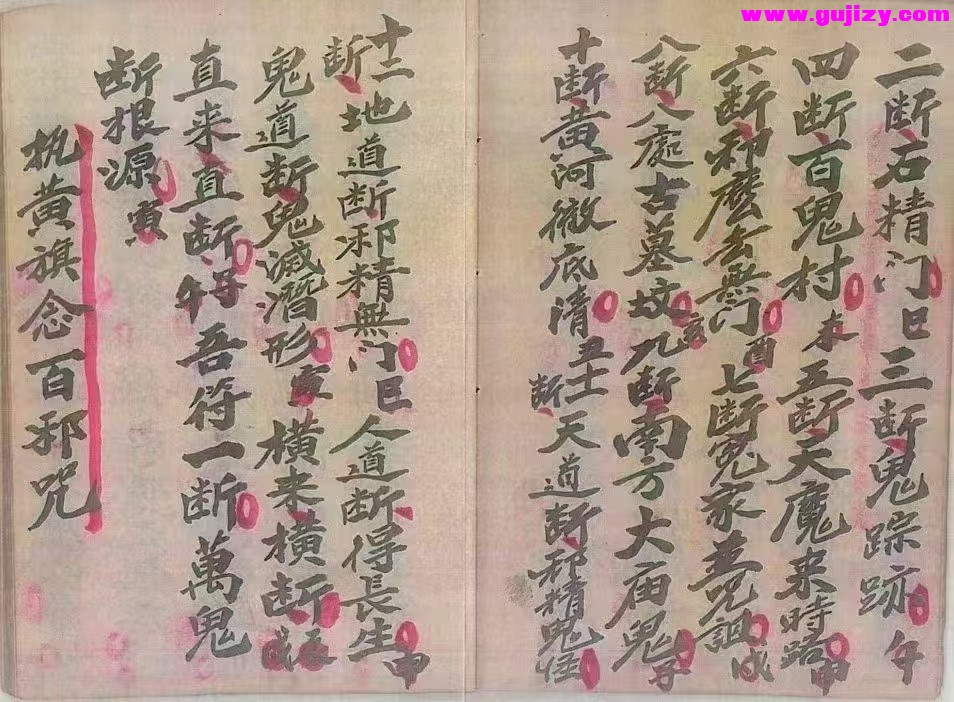 www.gujizy.com
二断石精门巳三断鬼踪跡午
四断百鬼村未五断天魔来時路申
六断邪麽去無门酉七断冤家並咒詛戌
八断八處古墓坟亥九断南方大庙鬼子
十断黄河徹底清丑十一断天道断邪精鬼怪
十二断地道断邪精無门巳人道断得長生申
鬼道断鬼滅潛形寅横来横断辰戌
直来直断子午吾符一断萬鬼
断根源寅
执黄旗念百邪咒